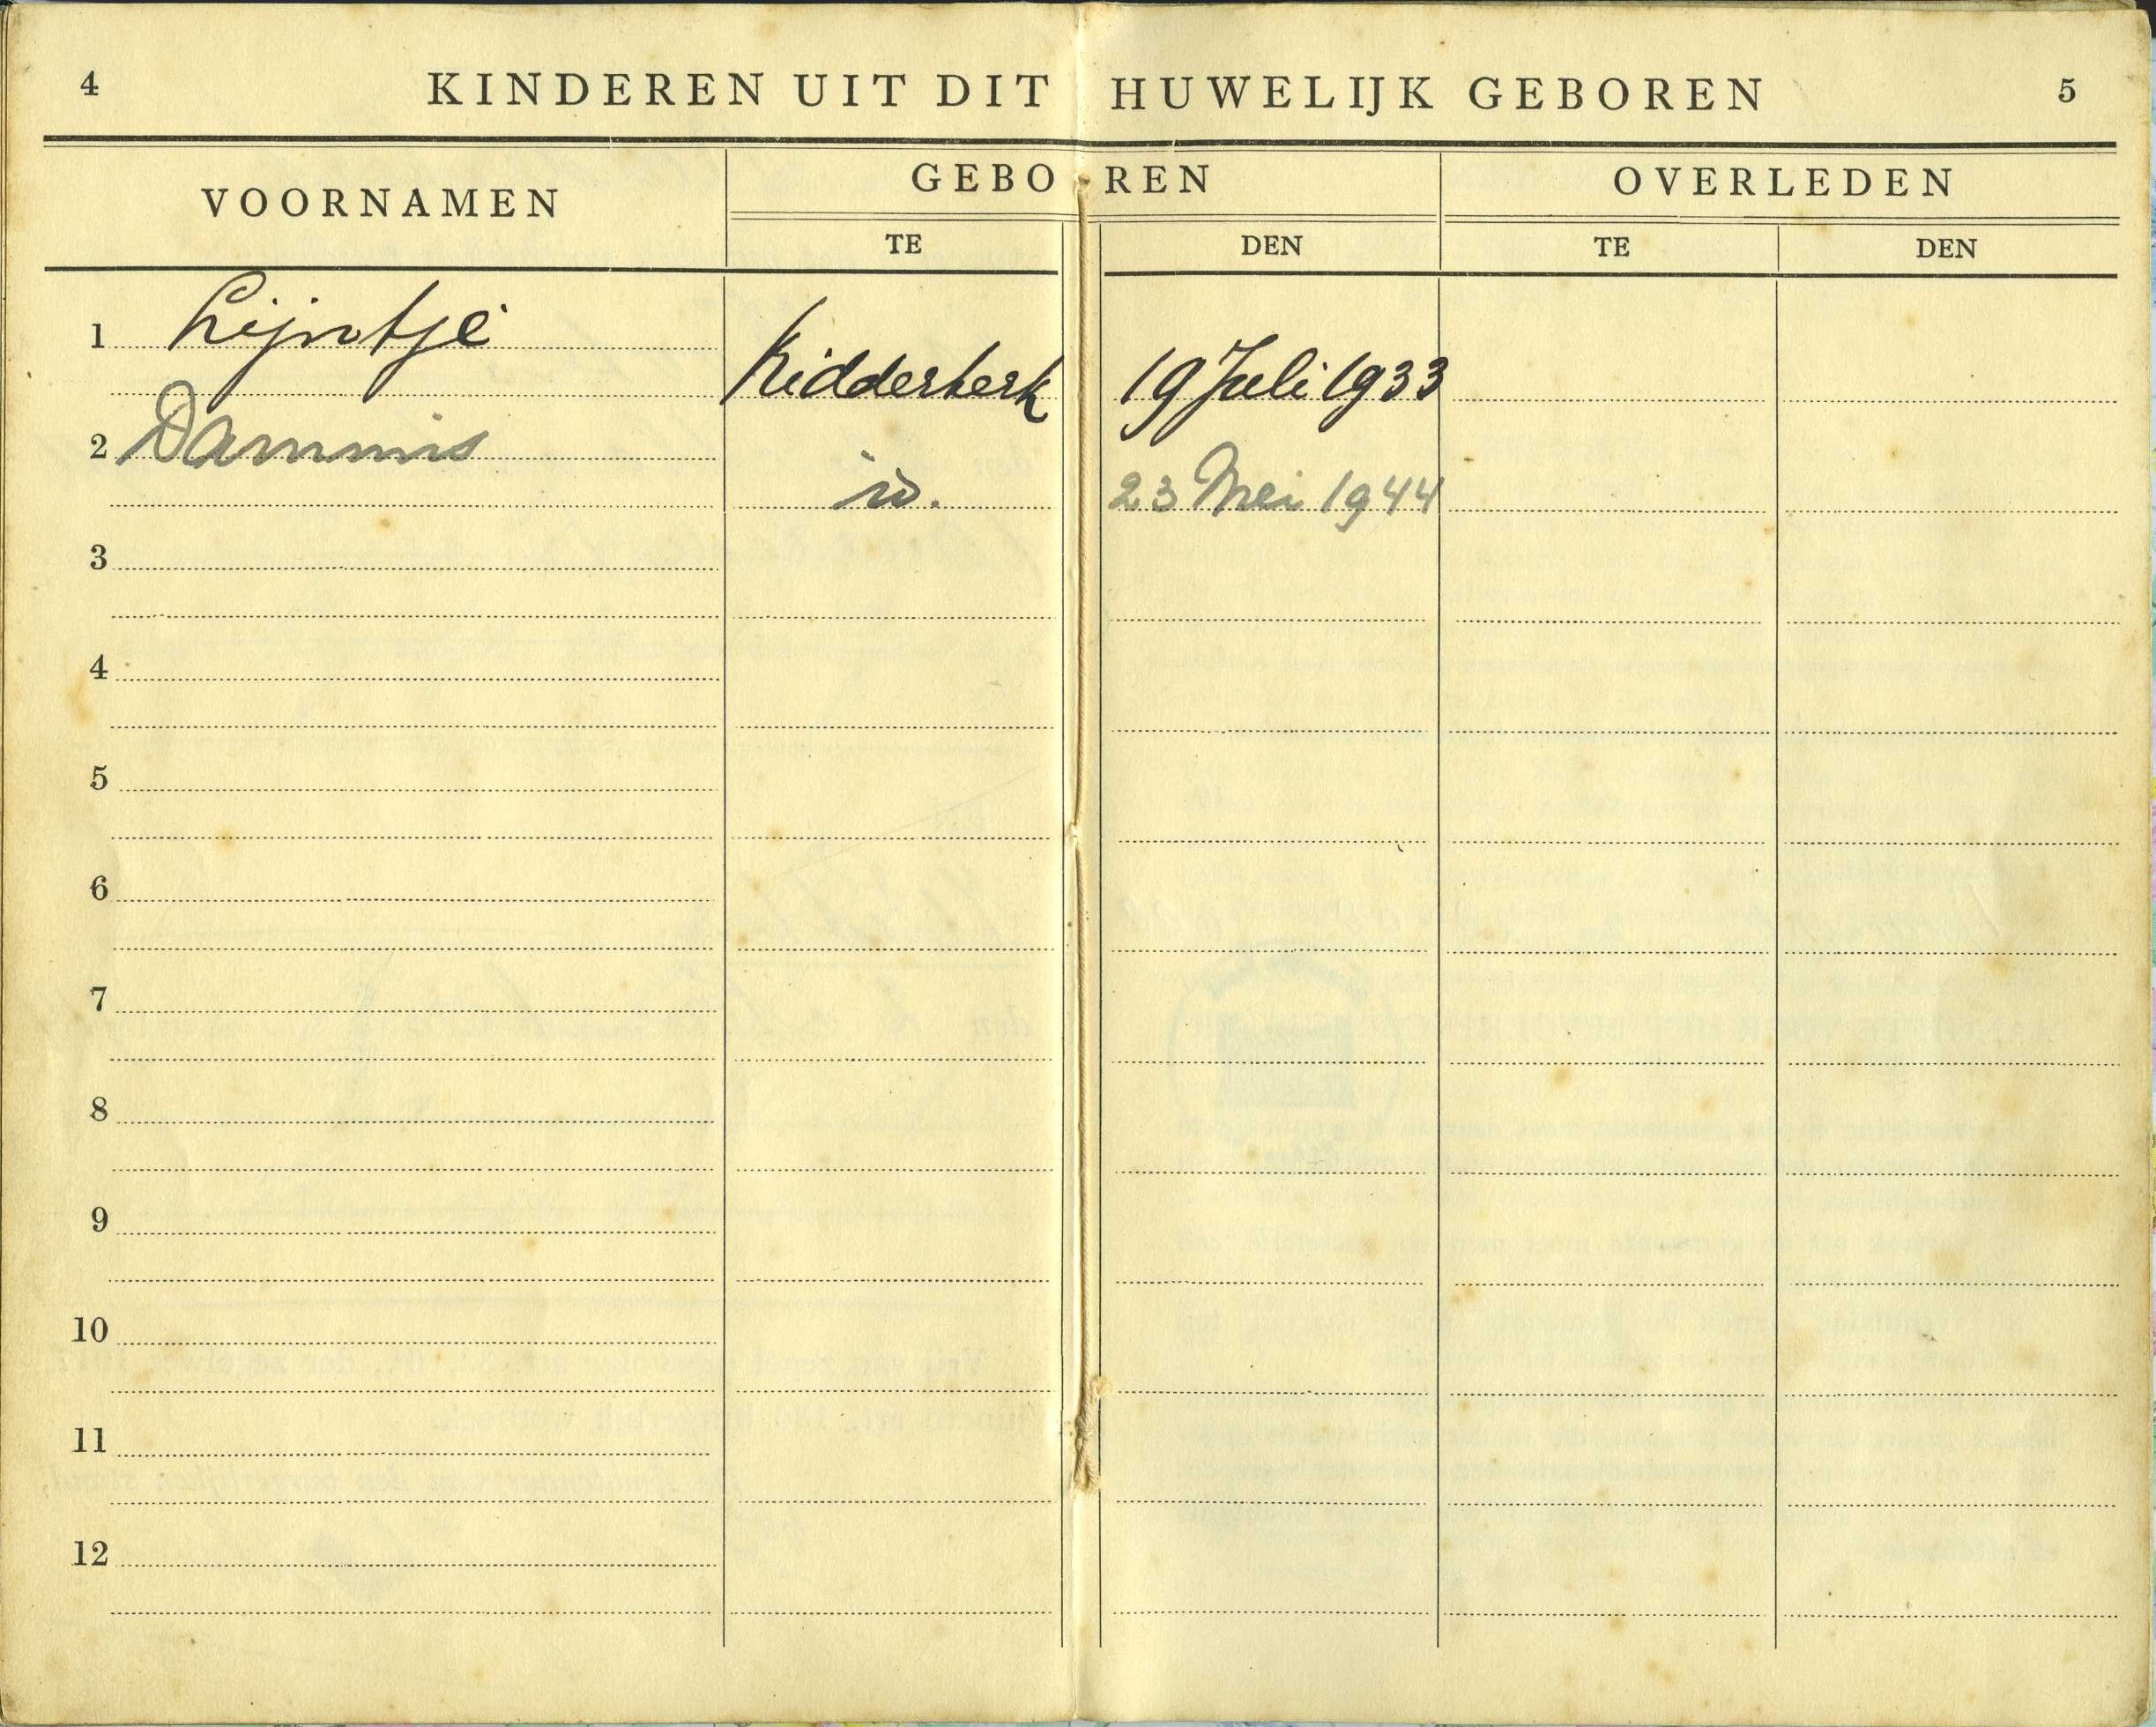 4 KINDEREN UIT DIT HUWELIJK GEBOREN 5
VOORNAMEN GEBOREN OVERLEDEN
TE DEN TE DEN
1 Lijntje
Ridderkerk 19 Juli 1933
2 Dammis
id. 23 Mei 1944
3
4
5
6
7
8
9
10
11
12